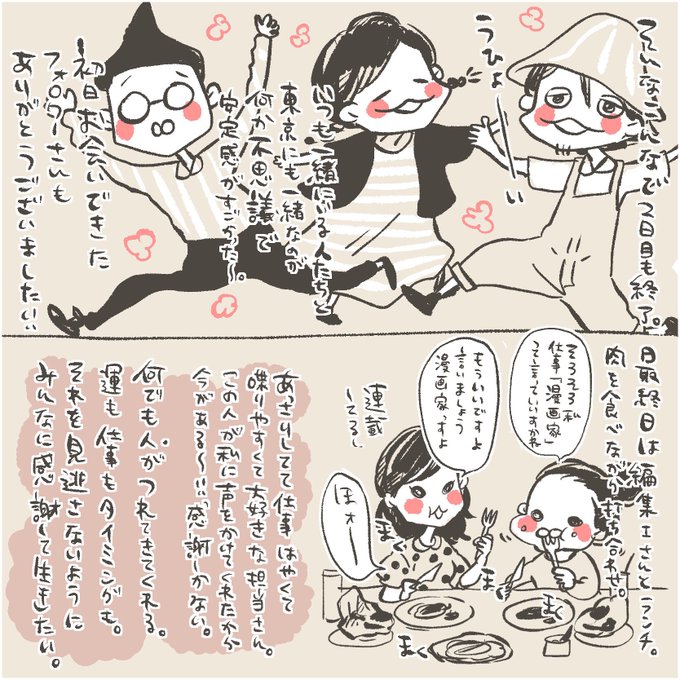 そんなこんなで2日目も終了。
うひょーい
いつも一緒にいる人たちと
東京にも一緒なのが
何か不思議で
安定感がすごかった〜。
初日お会いできた
フォロワーさんも
ありがとうございましたい
最終日は編集Iさんとランチ。
肉を食べながら打ち合わせ。
そろそろ私
仕事「漫画家」
って言っていいすかね
もういいですよ
言いましょう
漫画家っすよ
連載
してるし
ほォー
もぐ
もぐ
もぐ
もぐ
あっさりしてて仕事はやくて
喋りやすくて大好きな担当さん。
この人が私に声をかけてくれたから
今がある〜!!感謝しかない。
何でも人がつれてきてくれる。
運も仕事もタイミングも。
それを見逃さないように
みんなに感謝して生きたい。